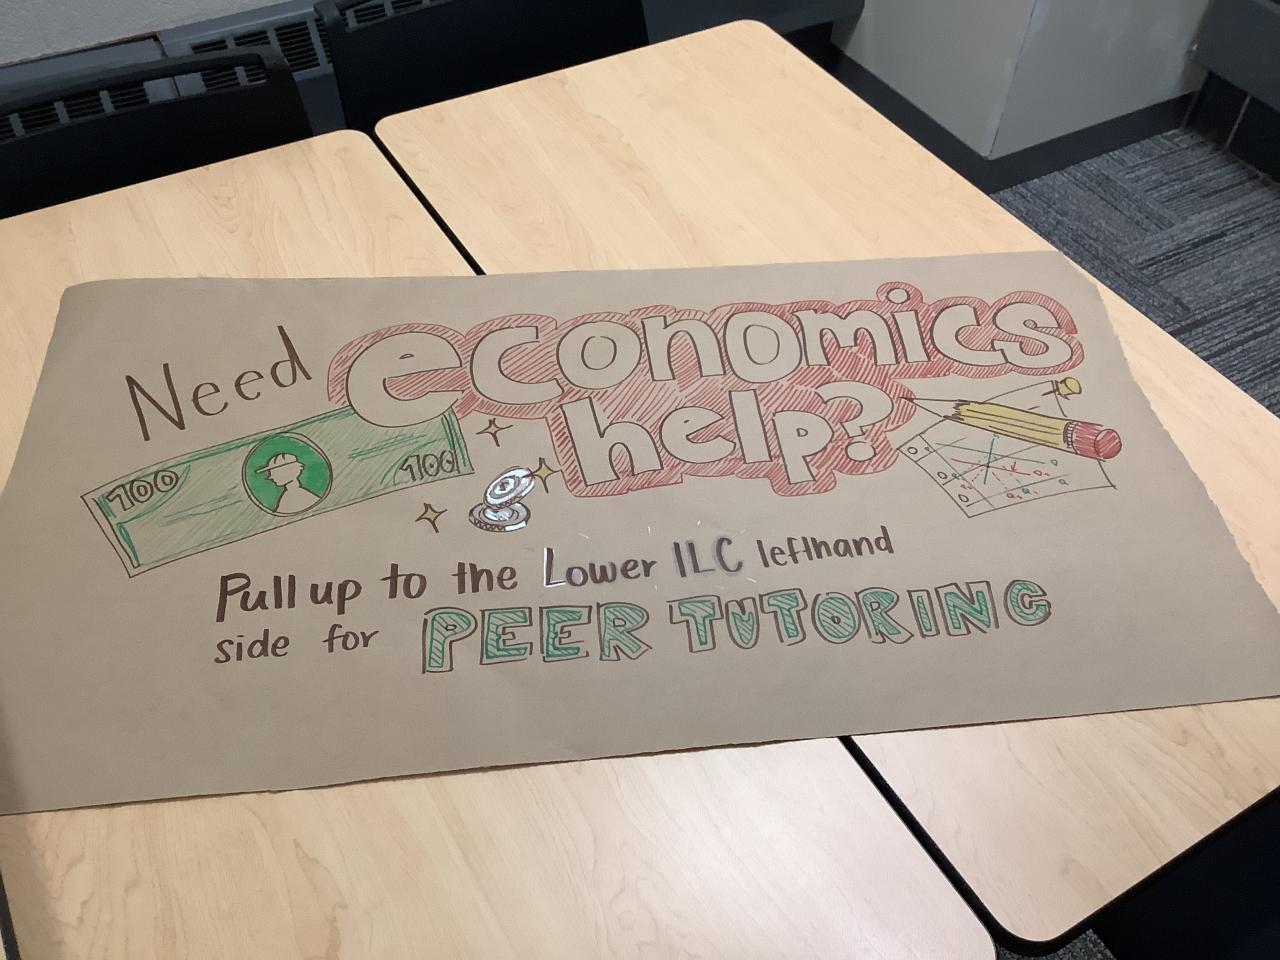 Need economics
help?
100 100
Pull up to the Lower ILC lefthand
side for PEER TUTORING